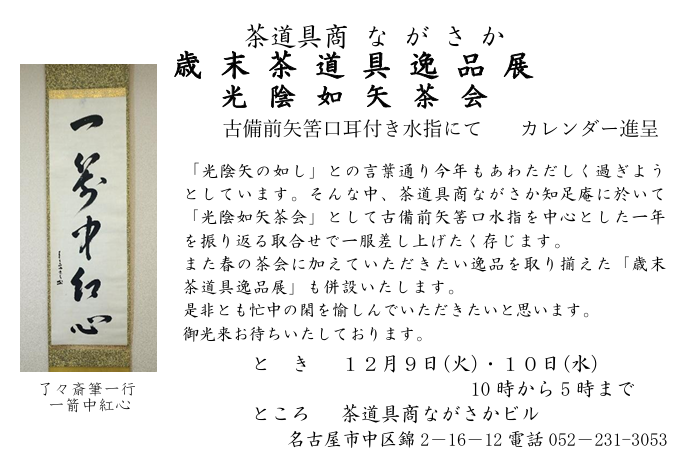 茶道具商 ながさか
歳末茶道具逸品展
光陰如矢茶会
古備前矢筈口耳付き水指にて　カレンダー進呈
「光陰矢の如し」との言葉通り今年もあわただしく過ぎよう
としています。そんな中、茶道具商ながさか知足庵に於いて
「光陰如矢茶会」として古備前矢筈口水指を中心とした一年
を振り返る取合せで一服差し上げたく存じます。
また春の茶会に加えていただきたい逸品を取り揃えた「歳末
茶道具逸品展」も併設いたします。
是非とも忙中の閑を愉しんでいただきたいと思います。
御光来お待ちいたしております。
と　き　１２月９日(火)・１０日(水)
10時から5時まで
ところ　茶道具商ながさかビル
名古屋市中区錦2－16－12 電話 052－231-3053
一箭中紅心
了々斎筆一行
一箭中紅心